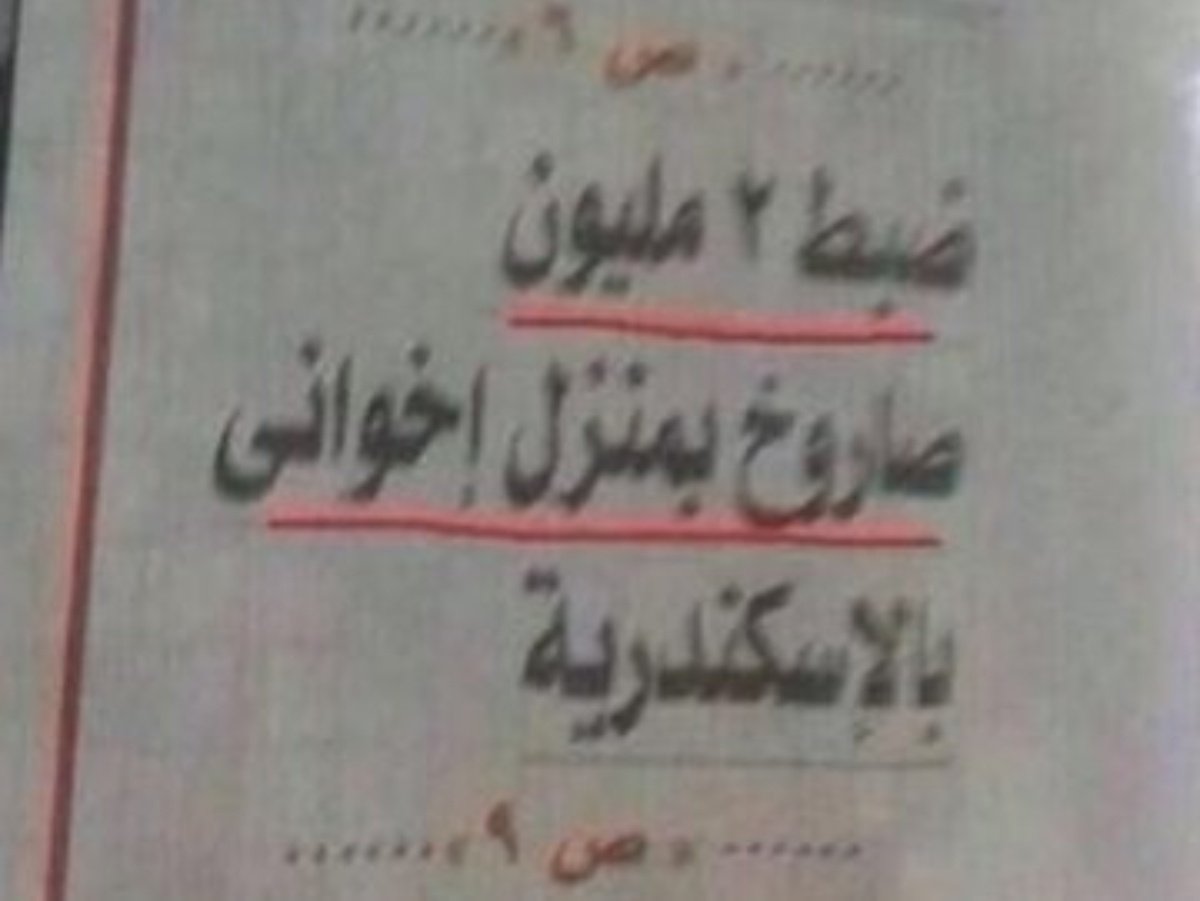 ص ٩
ضبط ٢ مليون
صاروخ بمنزل إخوانى
بالإسكندرية
ص ٩